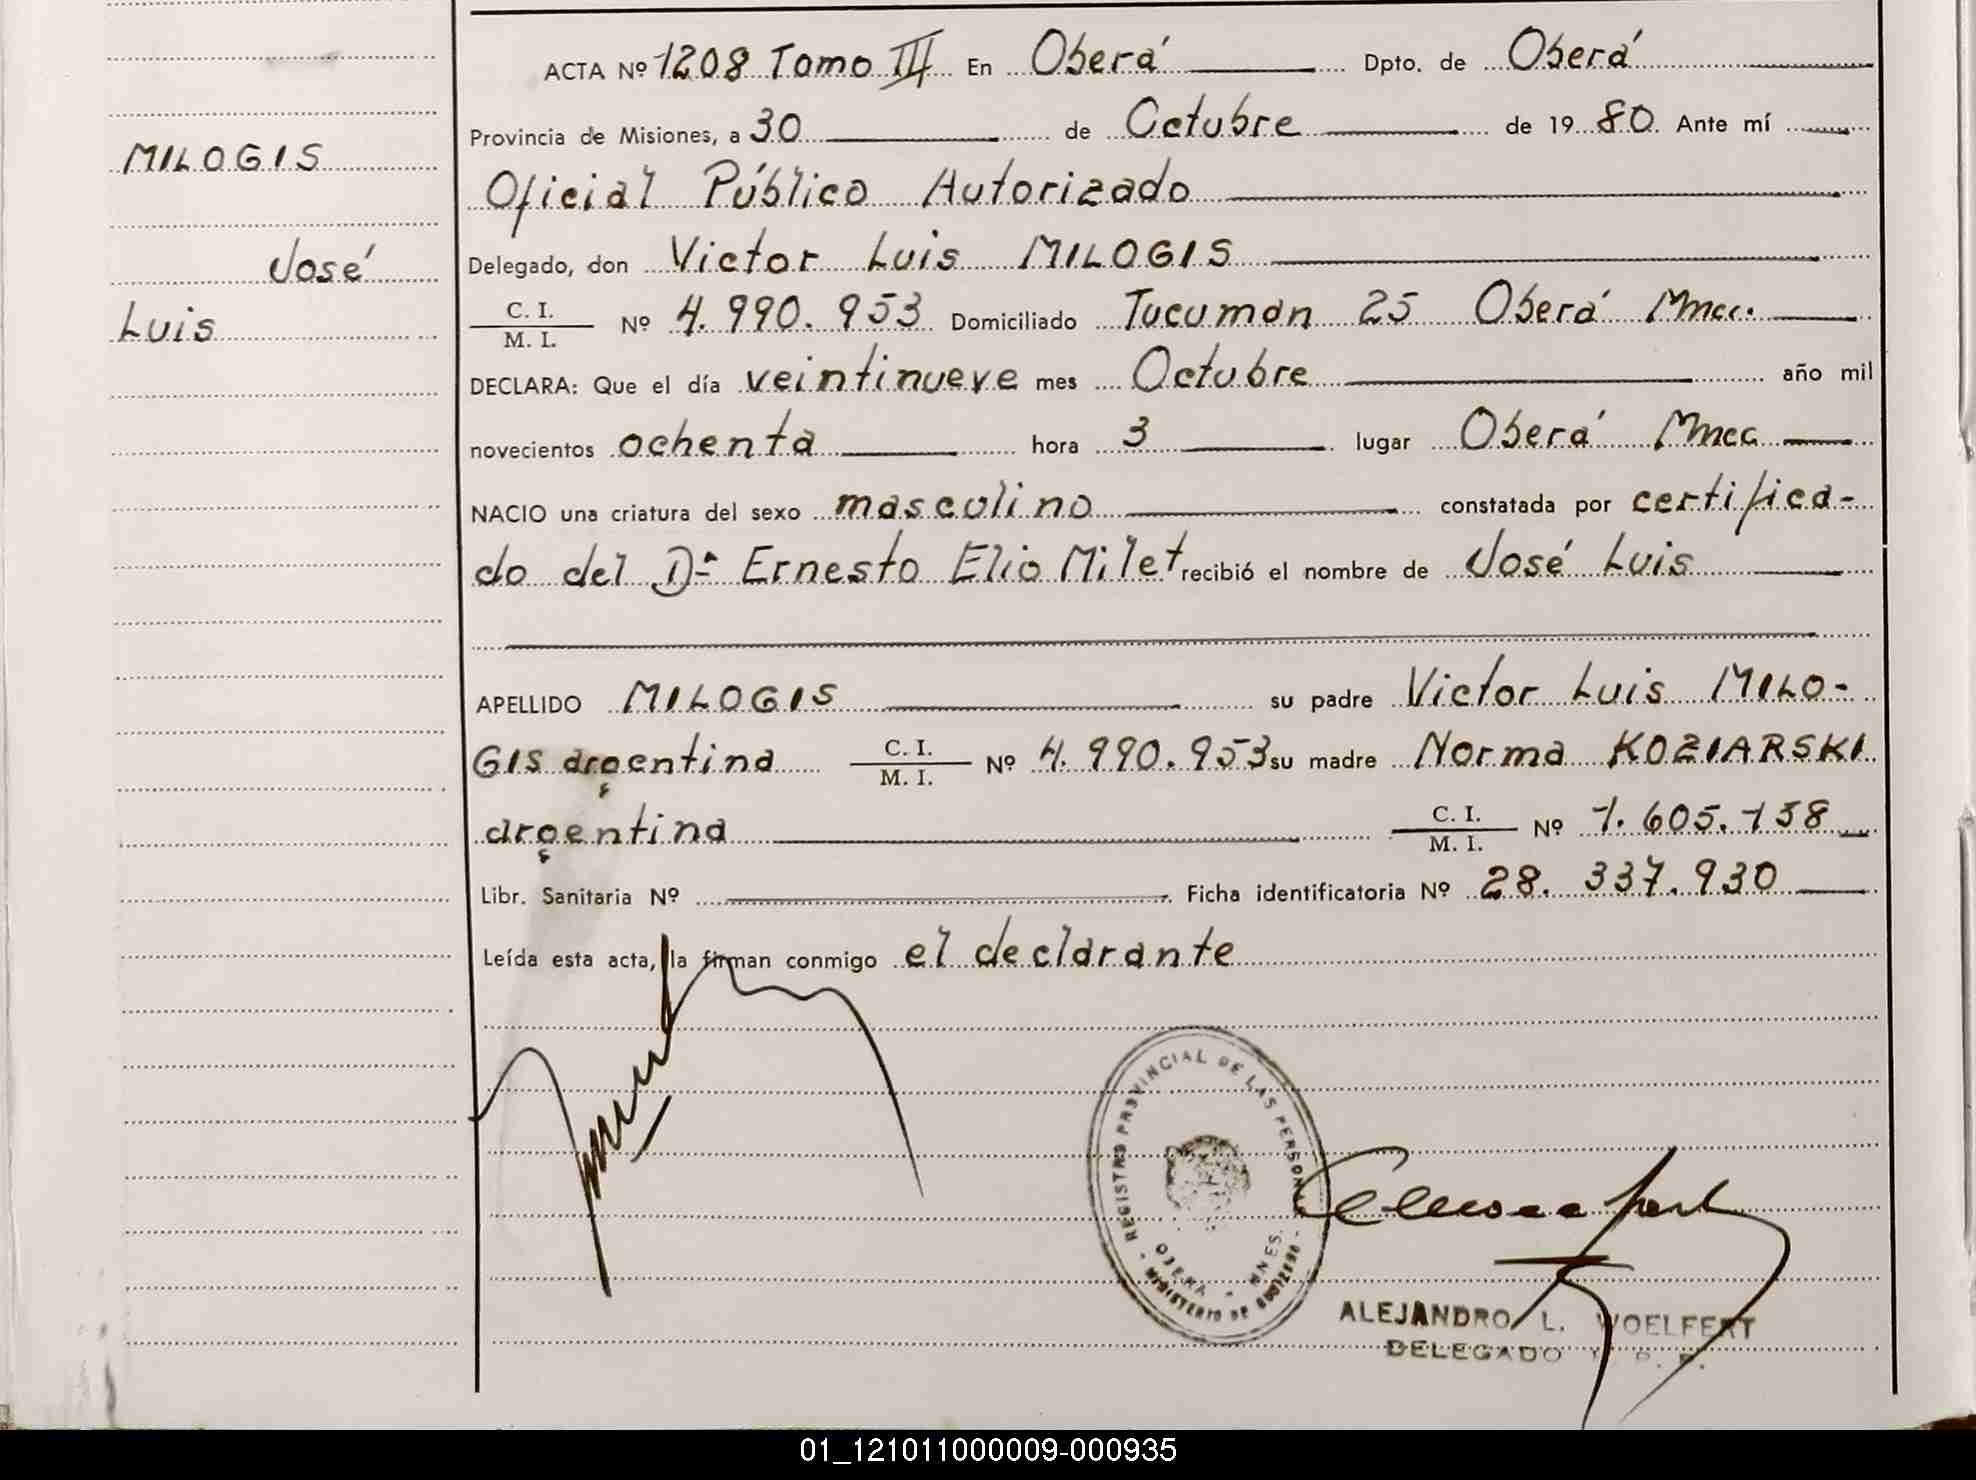 ACTA Nº 1208 Tomo III En Oberá Dpto. de Oberá
Provincia de Misiones, a 30 de Octubre de 1980. Ante mí
MILOGIS
Oficial Público Autorizado
José
Delegado, don Victor Luis MILOGIS
Luis
C. I.
M. I. Nº 4.990.953 Domiciliado Tucuman 25 Oberá Mnes.
DECLARA: Que el día veintinueve mes Octubre año mil
novecientos ochenta hora 3 lugar Oberá Mnes
NACIO una criatura del sexo masculino constatada por certifica-
do del Dr Ernesto Elio Milet recibió el nombre de José Luis
APELLIDO MILOGIS su padre Victor Luis MILO-
GIS argentina C. I.
M. I. Nº 4.990.953 su madre Norma KOZIARSKI
argentina C. I.
M. I. Nº 1.605.158
Libr. Sanitaria Nº Ficha identificatoria Nº 28. 337.930
Leída esta acta, la firman conmigo el declarante
REGISTRO PROVINCIAL DE LAS PERSONAS
OBERA - MNES.
- MINISTERIO DE GOBIERNO -
ALEJANDRO L. WOELFERT
DELEGADO R. P. P.
01_121011000009-000935